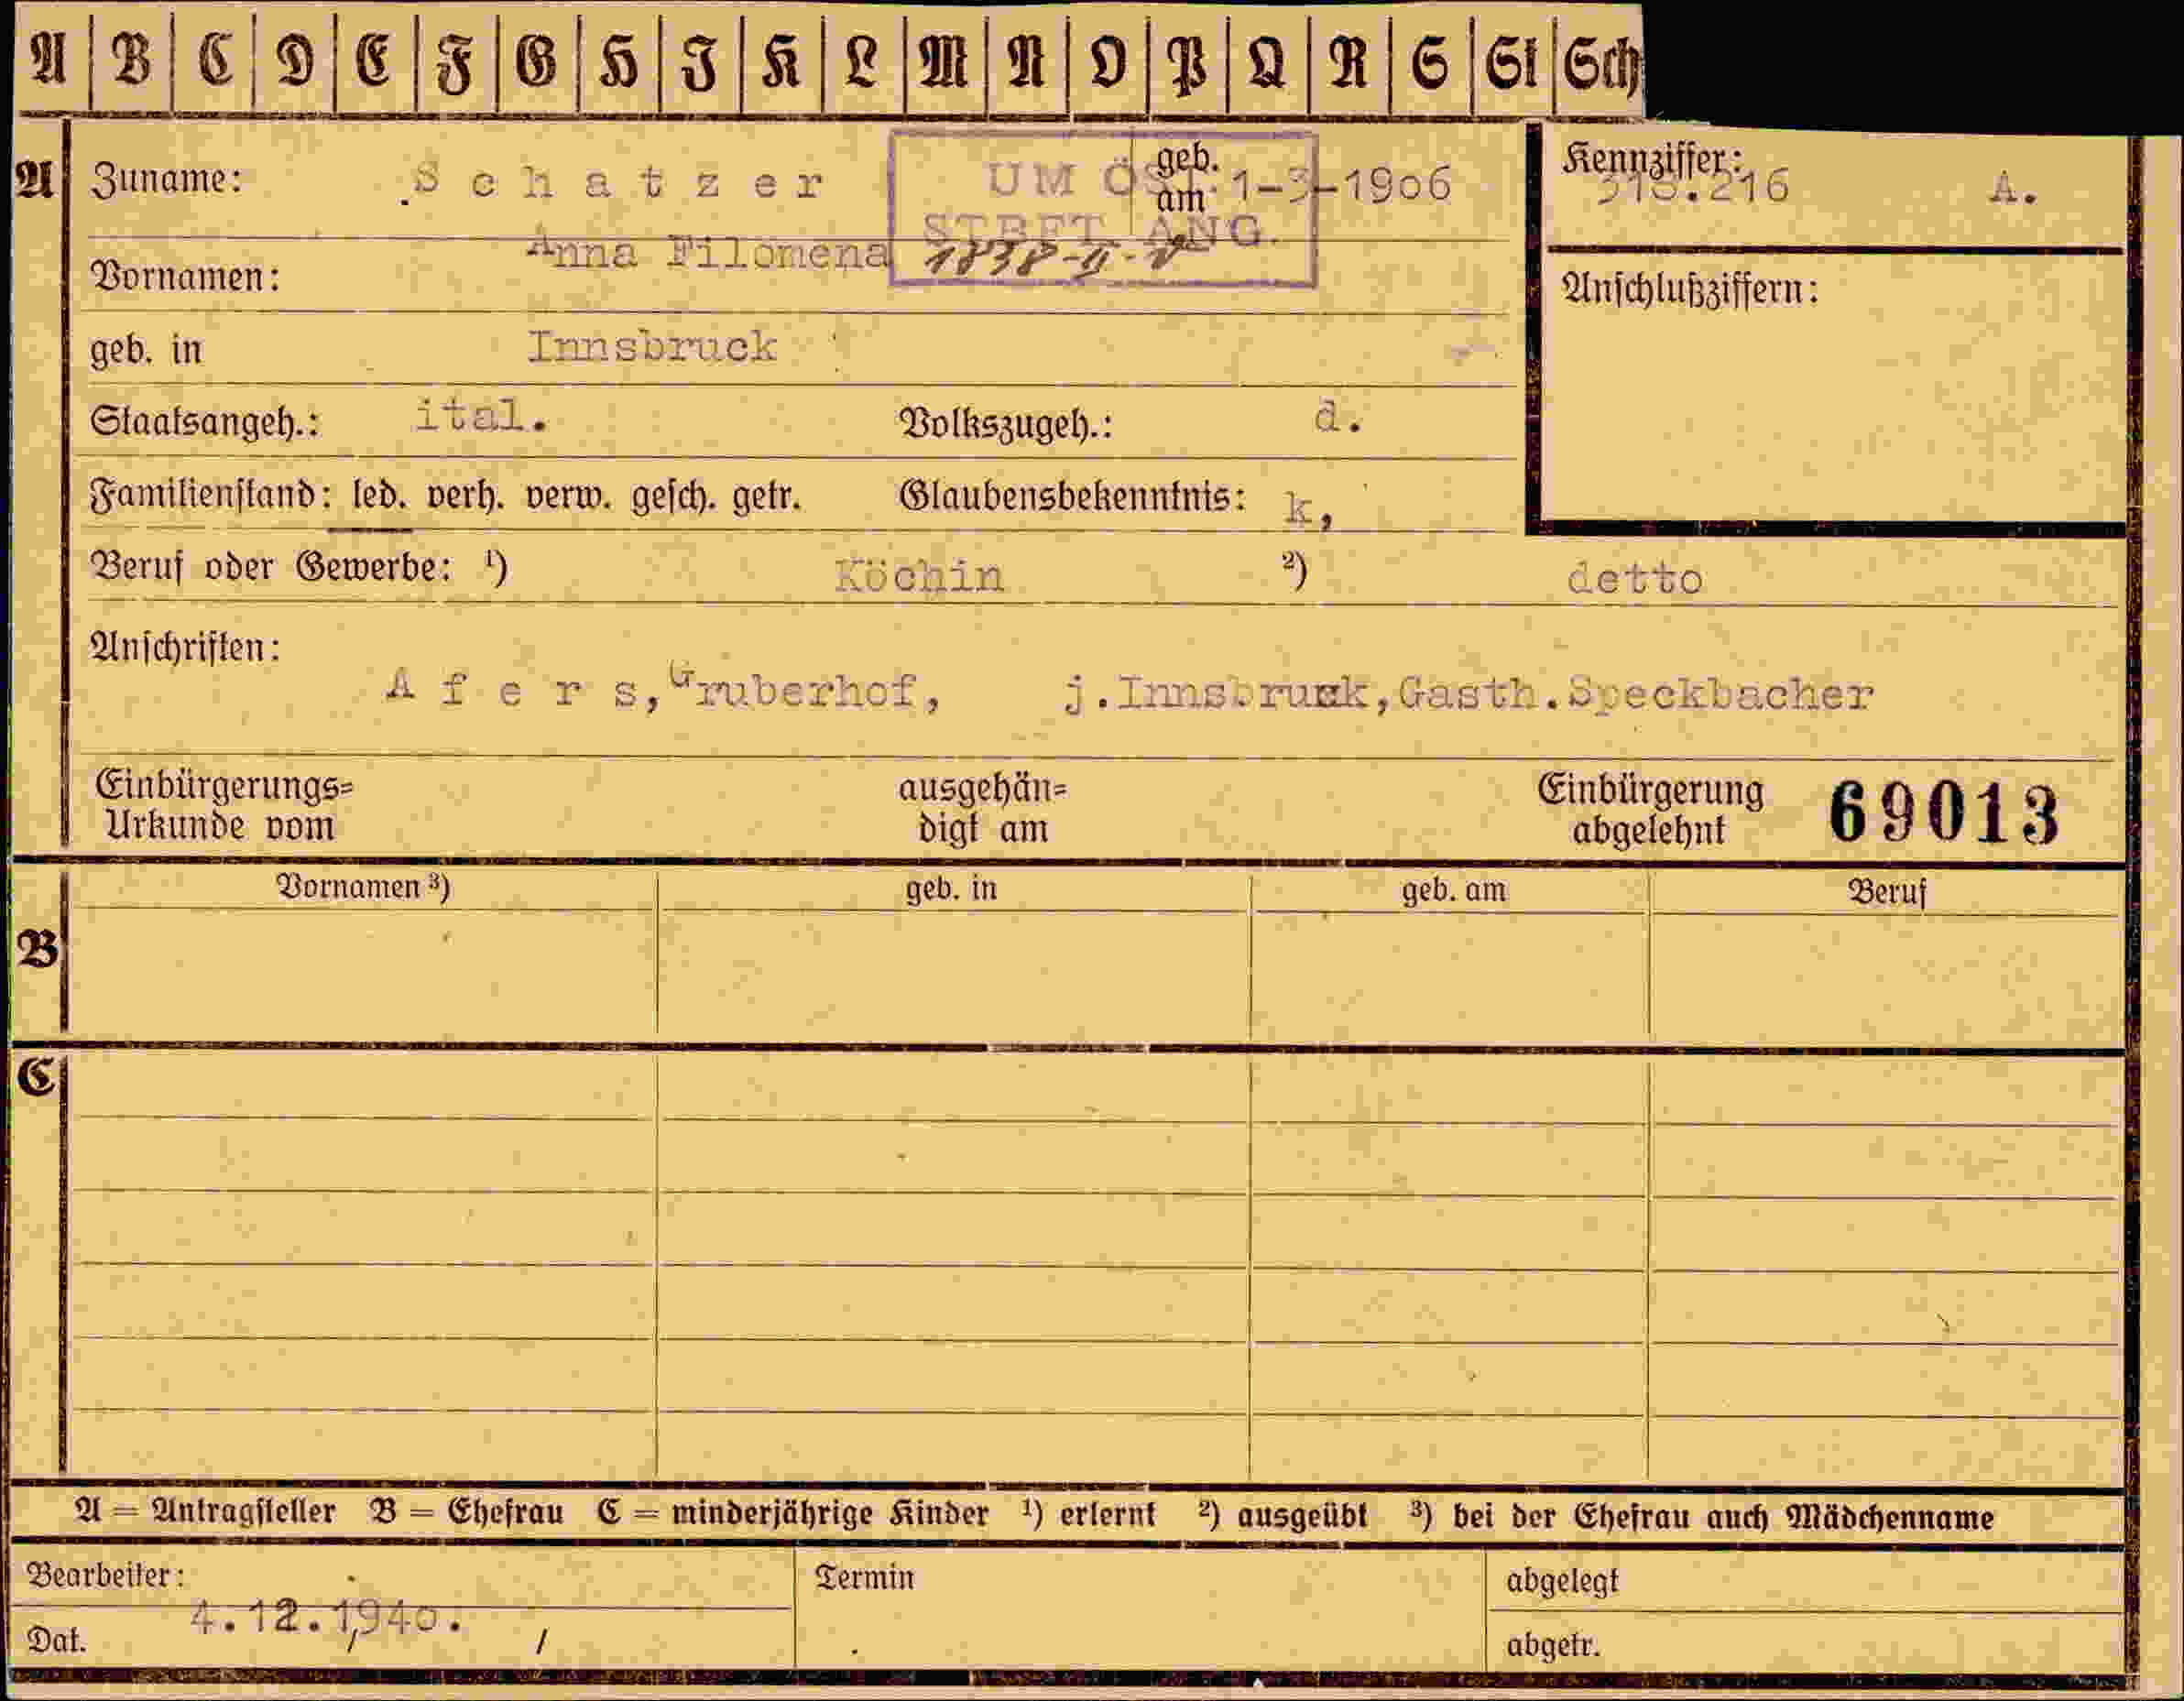 A B C D E F G H I K L M N O P Q R S St Sch
A Zuname: Schatzer geb. am 1-3-1906 Kennziffer: 318.216 A.
UM ÖST.
STBFT ANG.
1838-II-
Vornamen: Anna Filomena Anschlußziffern:
geb. in Innsbruck
Staatsangeh.: ital. Volkszugeh.: d.
Familienstand: led. verh. verw. gesch. getr. Glaubensbekenntnis: k,
Beruf oder Gewerbe: 1) Köchin 2) detto
Anschriften:
Afers, Gruberhof, j.Innsbruck,Gasth.Speckbacher
Einbürgerungs= ausgehän= Einbürgerung 69013
Urkunde vom digt am abgelehnt
Vornamen 3) geb. in geb. am Beruf
B
C
A = Antragsteller B = Ehefrau C = minderjährige Kinder 1) erlernt 2) ausgeübt 3) bei der Ehefrau auch Mädchenname
Bearbeiter: Termin abgelegt
Dat. 4.12.1940. / abgetr.